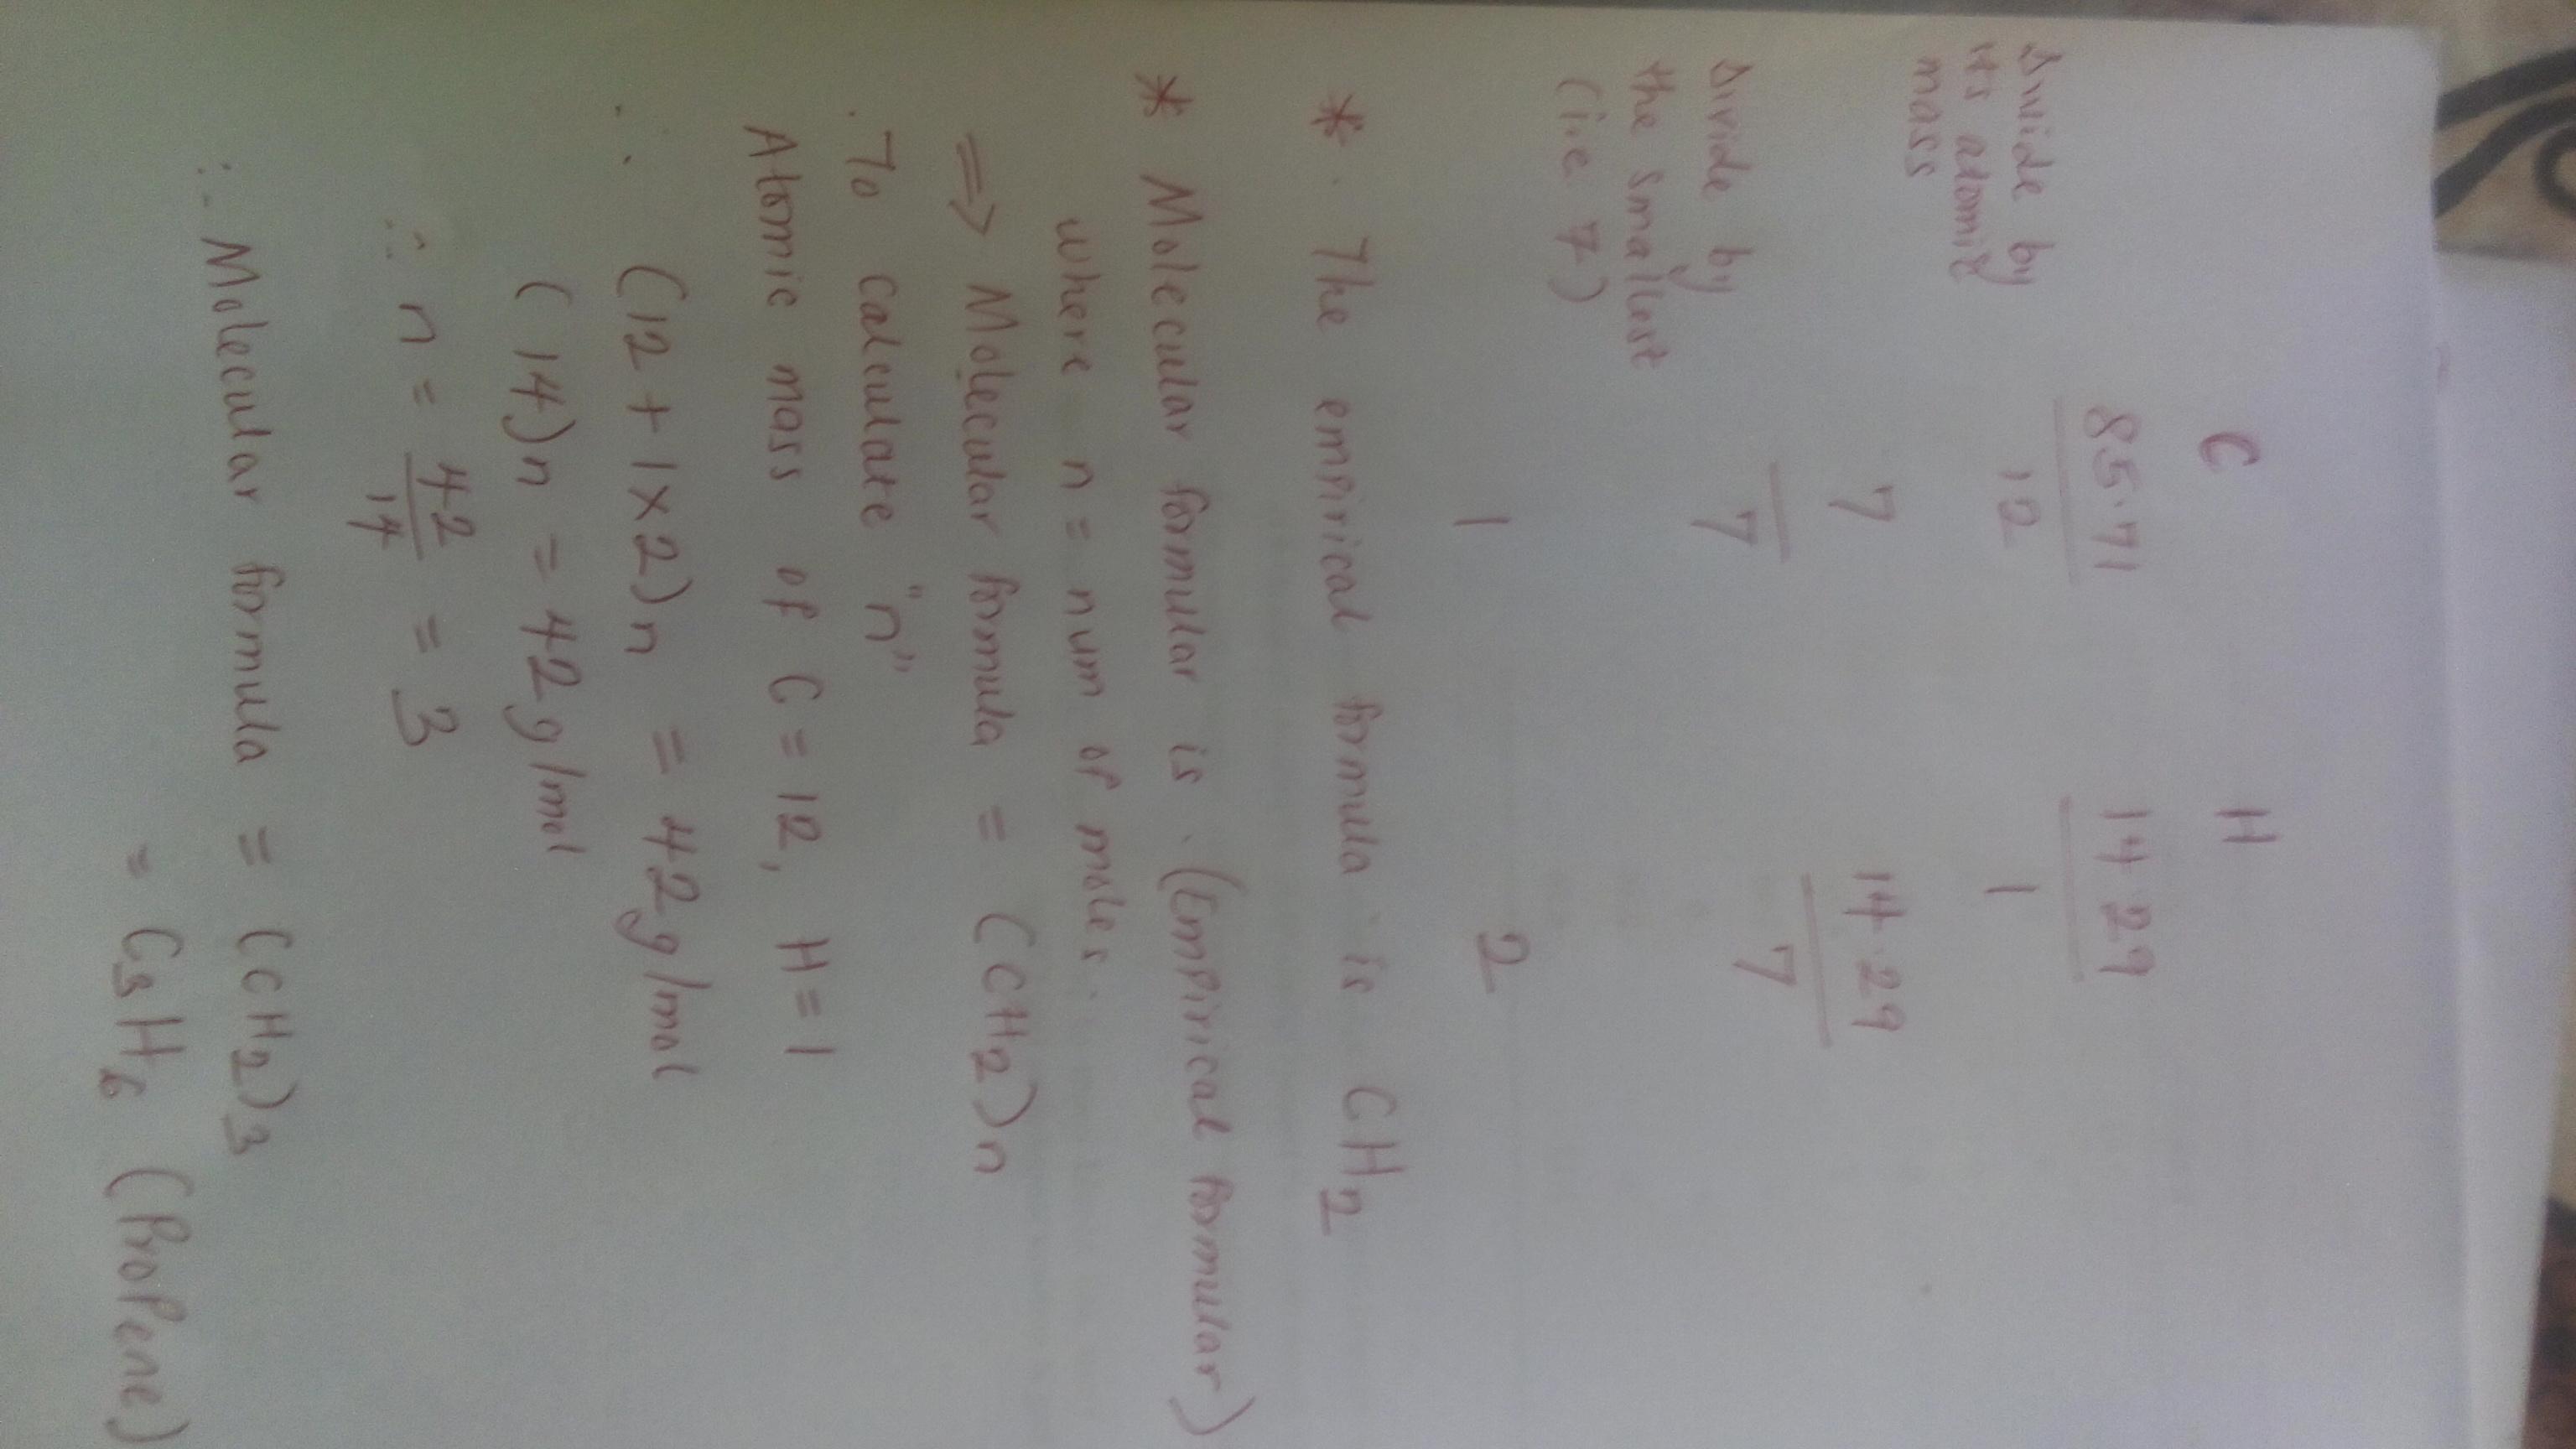 C H
85.71 14 29
Divide by its atomic mass 12 1
7 14.29
Divide by the smallest (i.e 7) 7 7
1 2
* The empirical formula is CH2
* Molecular formular is (Empirical formular)
where n = num of moles.
⇒ Molecular formula = (CH2)n
To calculate "n"
Atomic mass of C = 12, H = 1
∴ (12 + 1×2)n = 42g/mol
(14)n = 42g/mol
∴ n = 42/14 = 3
∴ Molecular formula = (CH2)3
= C3H6 (Propene)